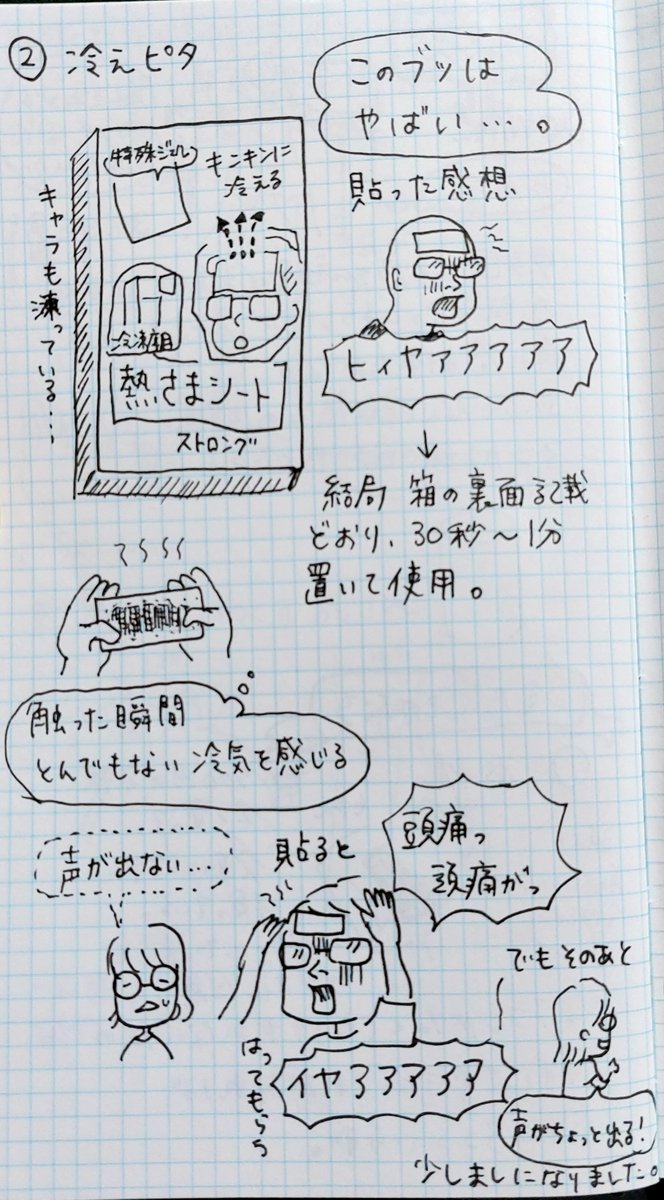 ② 冷えピタ
このブツは
やばい…。
特殊ジェル
キンキンに
冷える
冷凍庫用
熱さまシート
ストロング
キャラも凍っている…
貼った感想
ヒィヤアアアアア
↓
結局 箱の裏面記載
どおり、30秒～1分
置いて使用。
触った瞬間
とんでもない冷気を感じる
声が出ない…
貼ると
頭痛っ
頭痛がっ
イヤアアアアア
はってもらう
でもそのあと
声がちょっと出る!
少しましになりました。